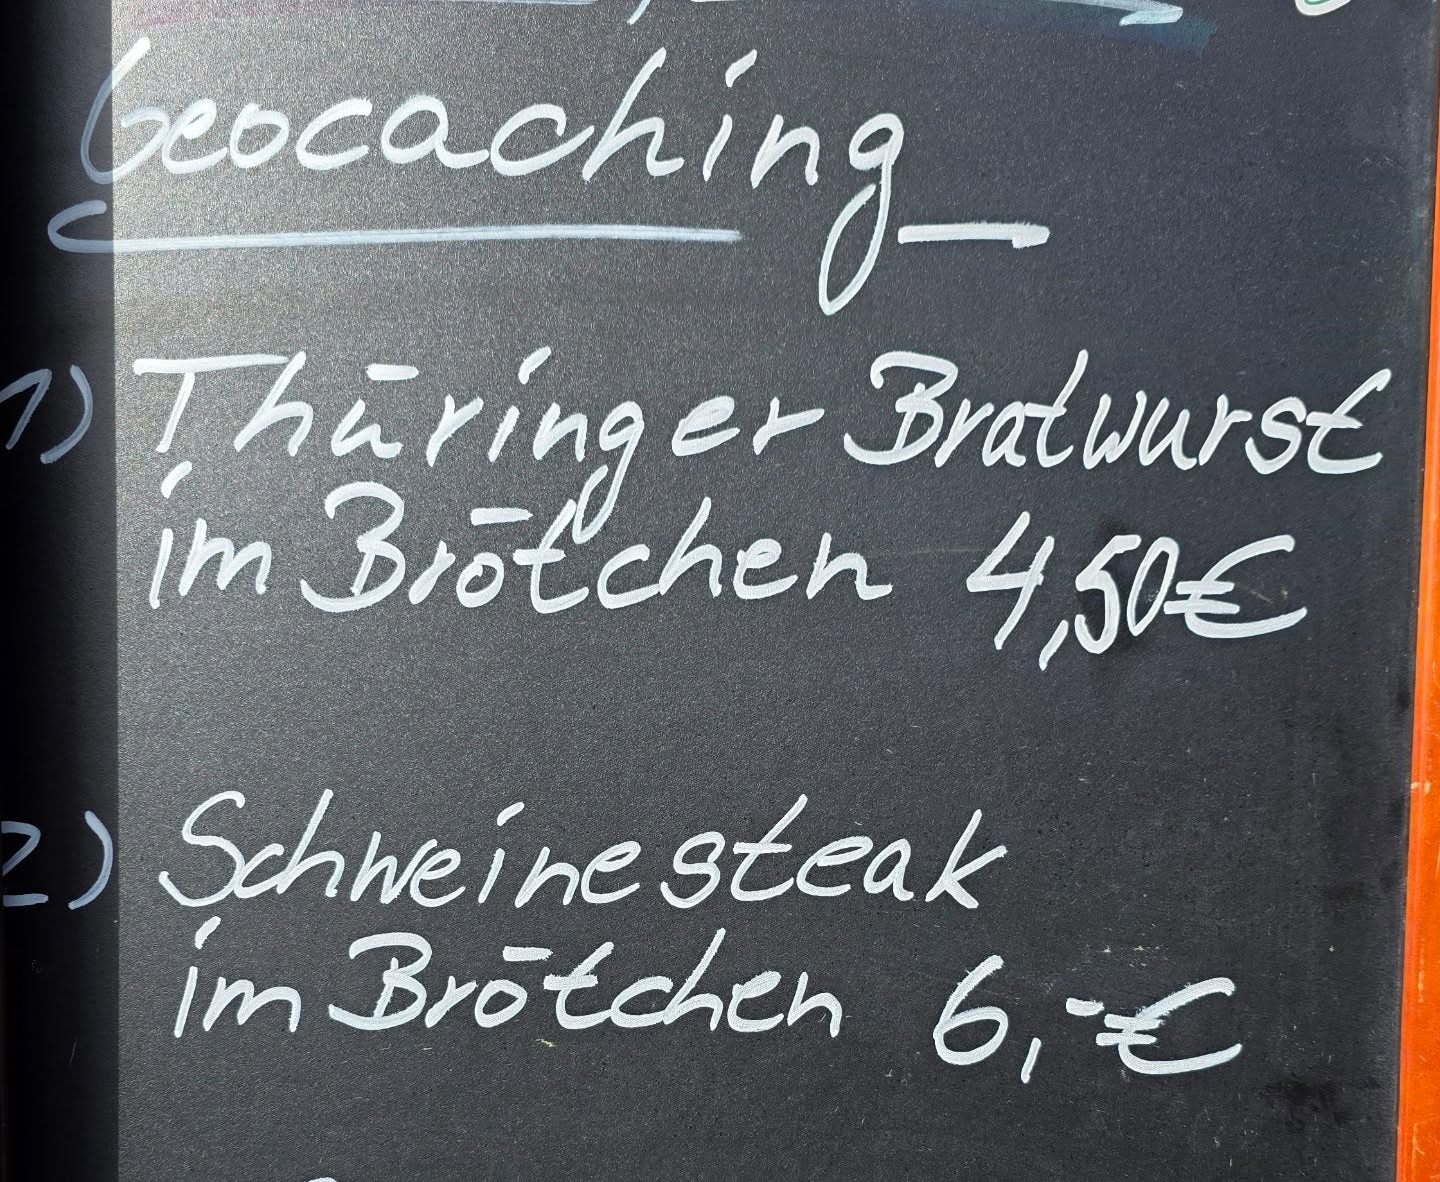 Geocaching
1) Thüringer Bratwurst
im Brötchen 4,50€
2) Schweinesteak
im Brötchen 6,-€